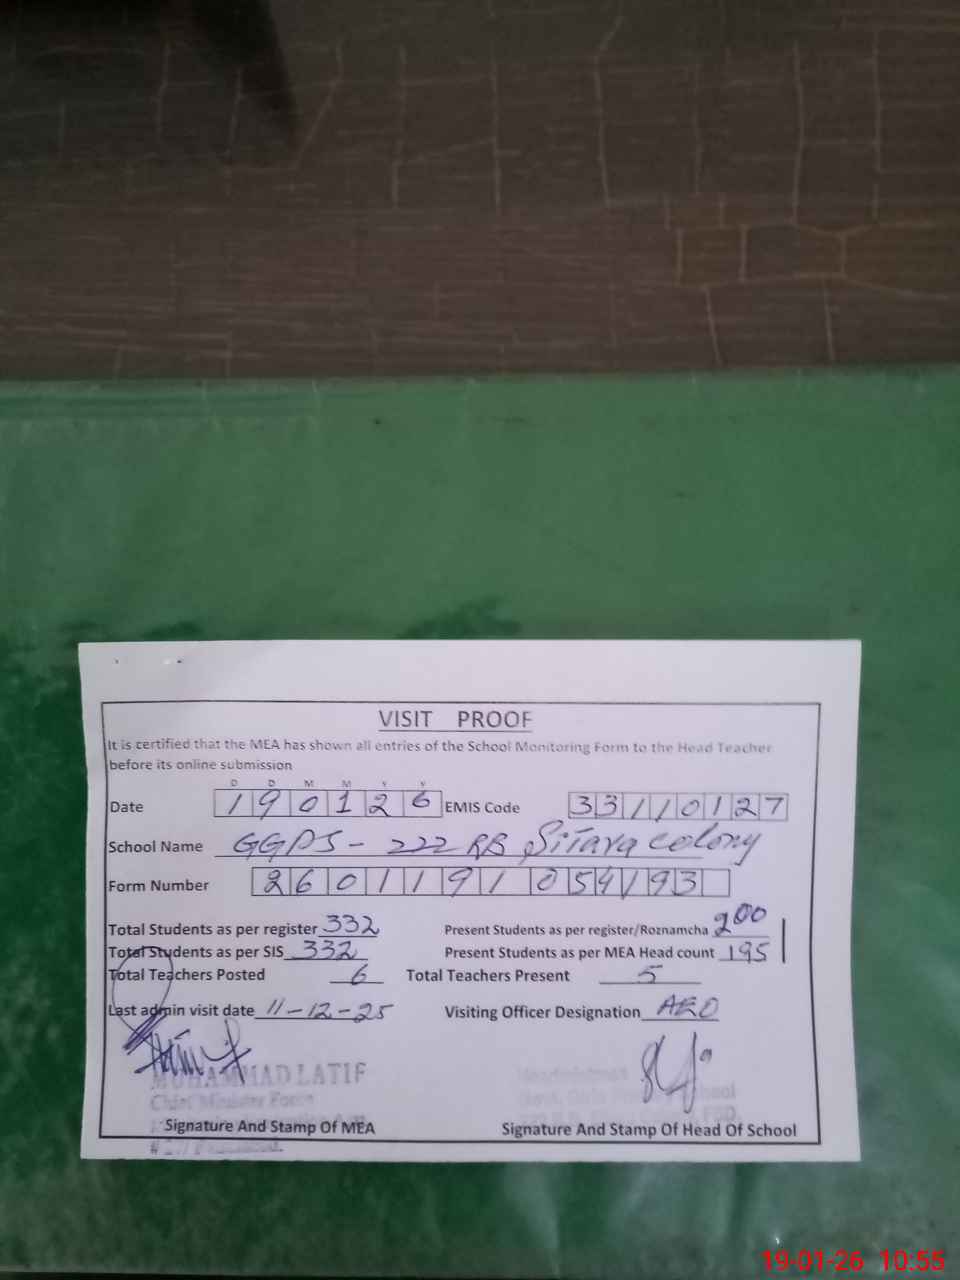 VISIT PROOF
It is certified that the MEA has shown all entries of the School Monitoring Form to the Head Teacher
before its online submission
D D M M Y Y
Date 190126 EMIS Code 33110127
School Name GGPS - 222 RB Sitara colony
Form Number 2601191054193
Total Students as per register 332 Present Students as per register/Roznamcha 200
Total Students as per SIS 332 Present Students as per MEA Head count 195
Total Teachers Posted 6 Total Teachers Present 5
Last admin visit date 11-12-25 Visiting Officer Designation AEO
MUHAMMAD LATIF
Chief Minister
Signature And Stamp Of MEA Signature And Stamp Of Head Of School
19-01-26 10:55